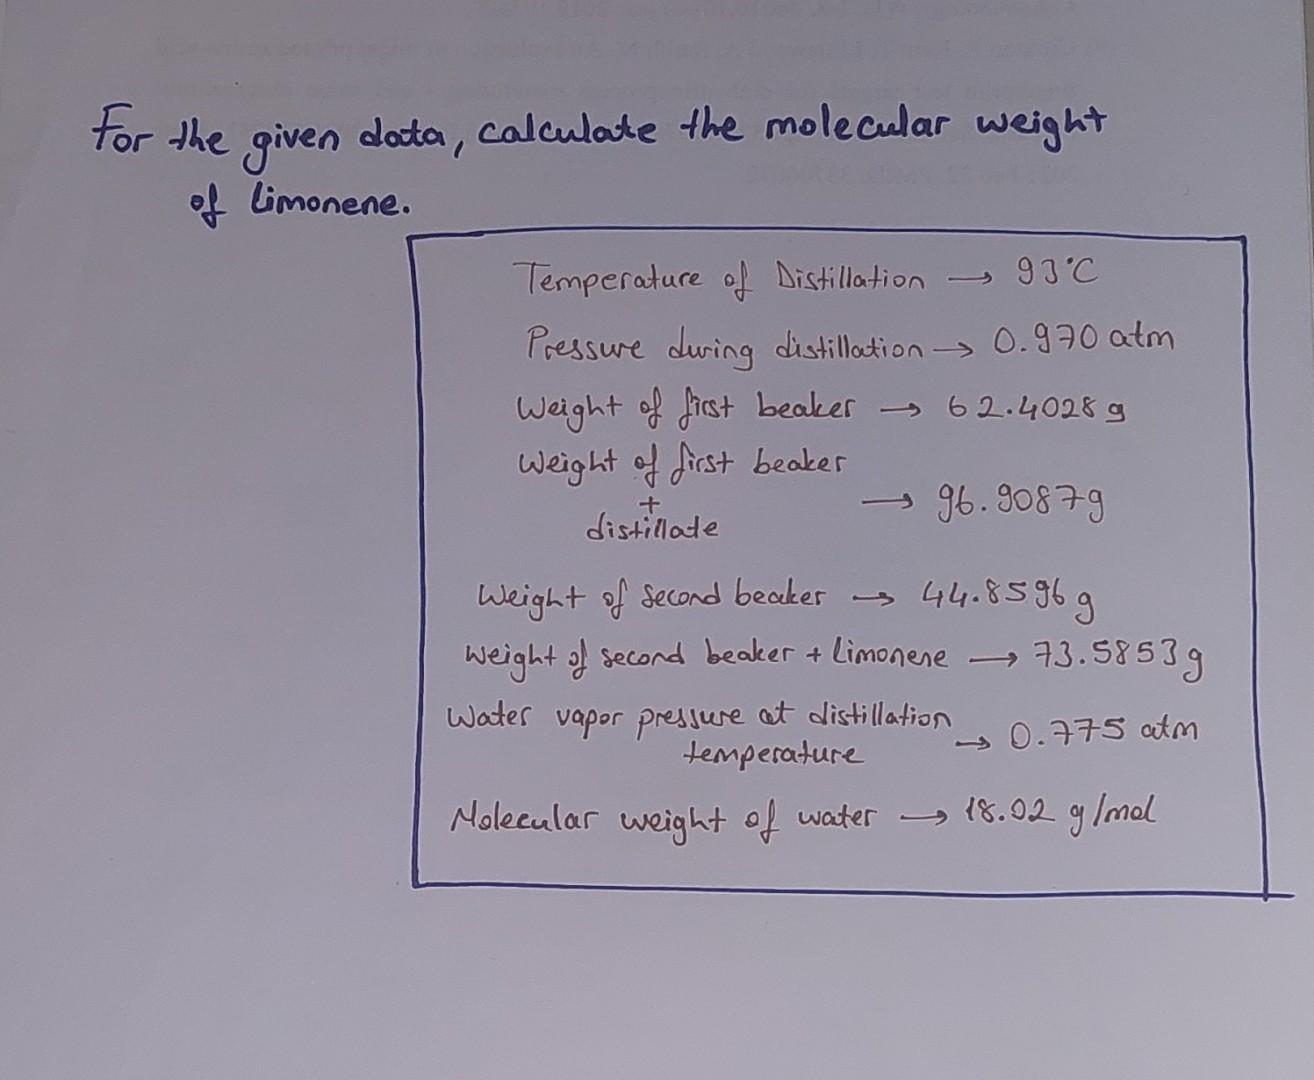 For the given data, calculate the molecular weight
of limonene.
Temperature of Distillation → 93°C
Pressure during distillation → 0.970 atm
Weight of first beaker → 62.4028 g
Weight of first beaker
+
distillate → 96.9087g
Weight of second beaker → 44.8596 g
Weight of second beaker + limonene → 73.5853 g
Water vapor pressure at distillation
temperature → 0.775 atm
Molecular weight of water → 18.02 g/mol